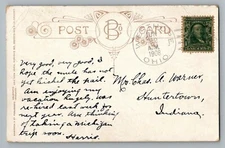 POST CARD
OHIO
1908
Very good, very good, I
hope the mule has not
gotten kicked the pail.
Am enjoying my
vacation hugely. Was
re-hired last eve for
next year. Am thinking
of taking a Michigan
trip soon.
Harris
Mr. Chas. A. Warner,
Huntertown,
Indiana.